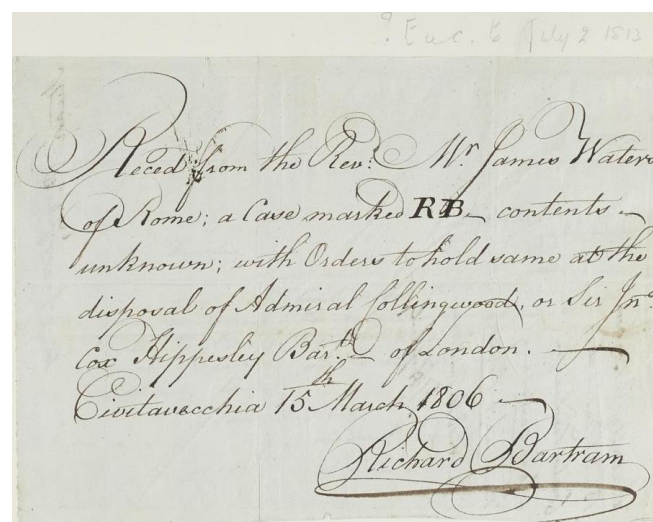 ? Enc. to July 2 1813
Reced from the Rev.d Mr James Waters
of Rome; a Case marked RB contents
unknown; with Orders to hold same at the
disposal of Admiral Collingwood, or Sir Jno
Cox Hippesley Bar.tt of London.
Civitavecchia 15th March 1806
Richard Bartram